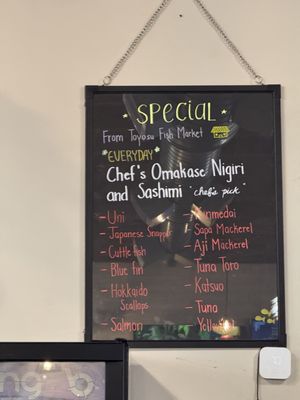 SPECIAL
From Toyosu Fish Market
*EVERYDAY*
Chef's Omakase Nigiri
and Sashimi "chef's pick"
- Uni
- Japanese Snapper
- Cuttle fish
- Blue fin
- Hokkaido
Scallops
- Salmon
- Kinmedai
- Saba Mackerel
- Aji Mackerel
- Tuna Toro
- Katsuo
- Tuna